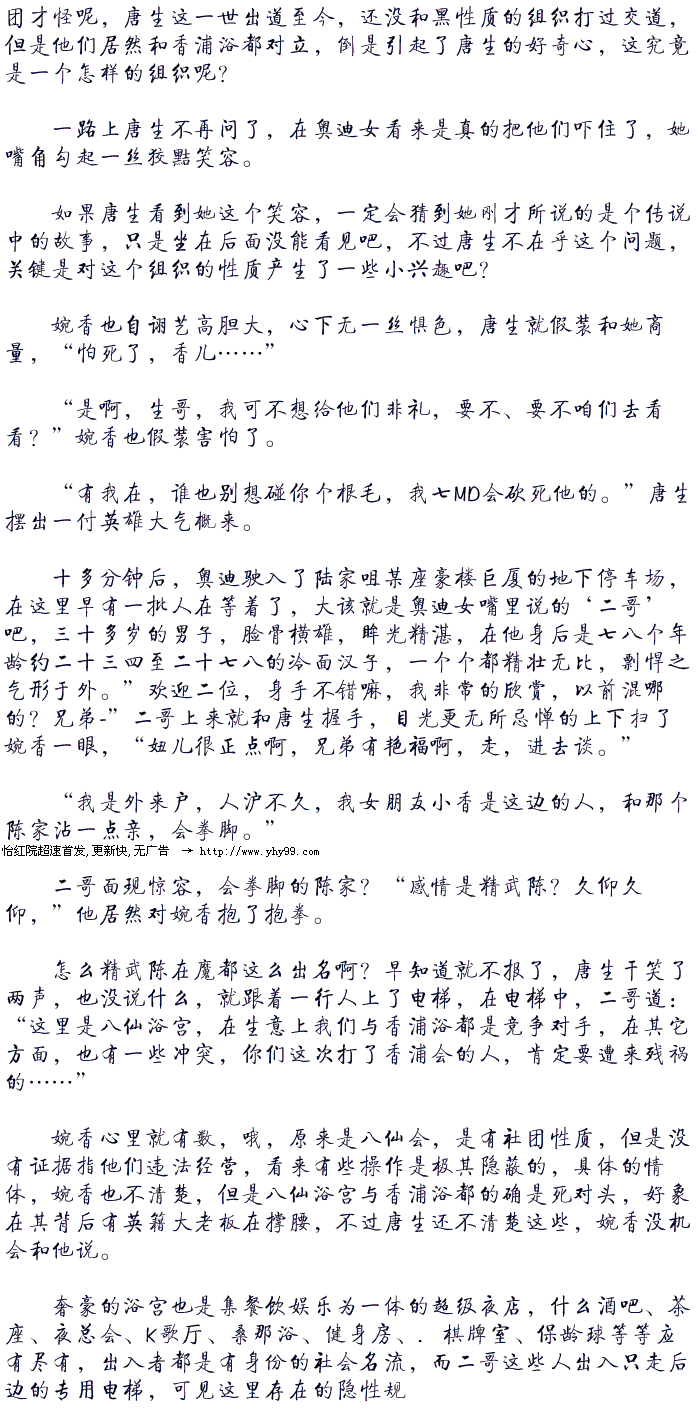 团才怪呢，唐生这一世出道至今，还没和黑性质的组织打过交道，
但是他们居然和香浦浴都对立，倒是引起了唐生的好奇心，这究竟
是一个怎样的组织呢？
一路上唐生不再问了，在奥迪女看来是真的把他们吓住了，她
嘴角勾起一丝狡黠笑容。
如果唐生看到她这个笑容，一定会猜到她刚才所说的是个传说
中的故事，只是坐在后面没能看见吧，不过唐生不在乎这个问题，
关键是对这个组织的性质产生了一些小兴趣吧？
婉香也自诩艺高胆大，心下无一丝惧色，唐生就假装和她商
量，“怕死了，香儿……”
“是啊，生哥，我可不想给他们非礼，要不、要不咱们去看
看？”婉香也假装害怕了。
“有我在，谁也别想碰你个根毛，我七MD会砍死他的。”唐生
摆出一付英雄大气概来。
十多分钟后，奥迪驶入了陆家咀某座豪楼巨厦的地下停车场，
在这里早有一批人在等着了，大该就是奥迪女嘴里说的‘二哥’
吧，三十多岁的男子，脸骨横雄，眸光精湛，在他身后是七八个年
龄约二十三四至二十七八的冷面汉子，一个个都精壮无比，剽悍之
气形于外。”欢迎二位，身手不错嘛，我非常的欣赏，以前混哪
的？兄弟-”二哥上来就和唐生握手，目光更无所忌惮的上下扫了
婉香一眼，“妞儿很正点啊，兄弟有艳福啊，走，进去谈。”
“我是外来户，人沪不久，我女朋友小香是这边的人，和那个
陈家沾一点亲，会拳脚。”
怡红院超速首发,更新快,无广告 → http://www.yhy99.com
二哥面现惊容，会拳脚的陈家？“感情是精武陈？久仰久
仰，”他居然对婉香抱了抱拳。
怎么精武陈在魔都这么出名啊？早知道就不报了，唐生干笑了
两声，也没说什么，就跟着一行人上了电梯，在电梯中，二哥道：
“这里是八仙浴宫，在生意上我们与香浦浴都是竞争对手，在其它
方面，也有一些冲突，你们这次打了香浦会的人，肯定要遭来残祸
的……”
婉香心里就有数，哦，原来是八仙会，是有社团性质，但是没
有证据指他们违法经营，看来有些操作是极其隐蔽的，具体的情
体，婉香也不清楚，但是八仙浴宫与香浦浴都的确是死对头，好象
在其背后有英籍大老板在撑腰，不过唐生还不清楚这些，婉香没机
会和他说。
奢豪的浴宫也是集餐饮娱乐为一体的超级夜店，什么酒吧、茶
座、夜总会、K歌厅、桑那浴、健身房、．棋牌室、保龄球等等应
有尽有，出入者都是有身份的社会名流，而二哥这些人出入只走后
边的专用电梯，可见这里存在的隐性规